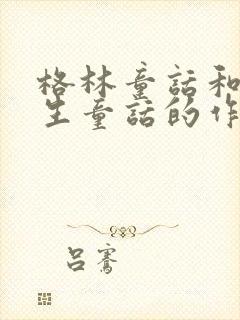 格林童話和
生童話的作
呂騫